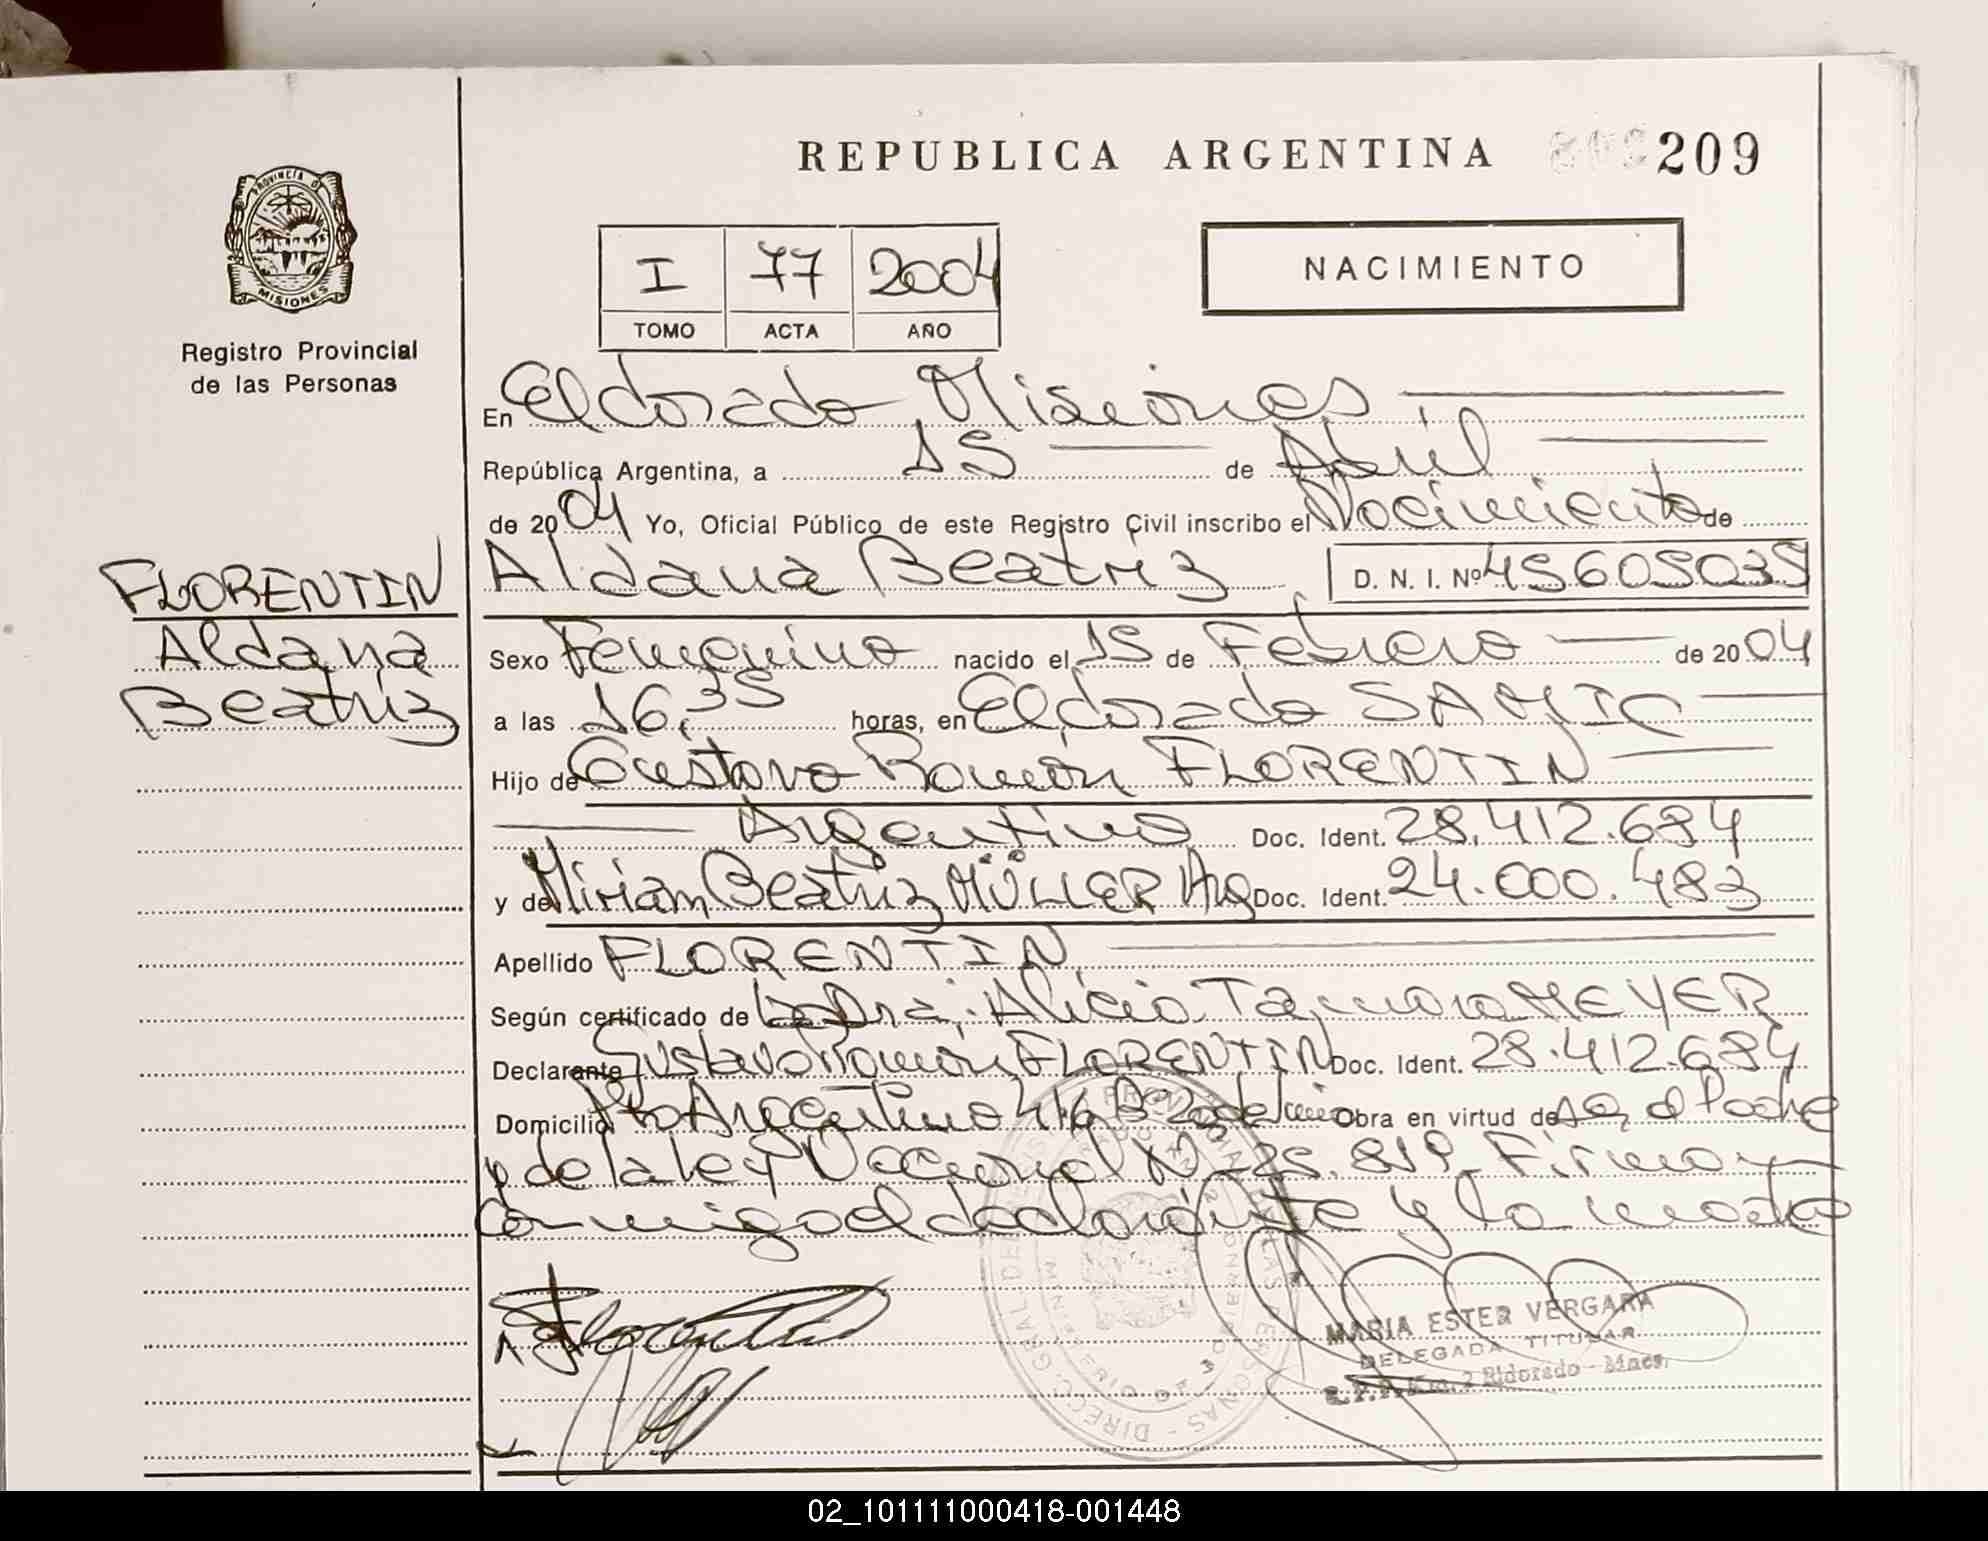 REPUBLICA ARGENTINA 209
PROVINCIA D
MISIONES
Registro Provincial
de las Personas
I 77 2004
TOMO ACTA AÑO
NACIMIENTO
En Eldorado Misiones
República Argentina, a 15 de Abril
de 2004 Yo, Oficial Público de este Registro Civil inscribo el Nacimiento de
Aldana Beatriz D. N. I. Nº 45605035
FLORENTIN
Aldana
Beatriz
Sexo Femenino nacido el 15 de Febrero de 2004
a las 16,35 horas, en Eldorado SAMIC
Hijo de Gustavo Ramón FLORENTIN
Argentino Doc. Ident. 28.412.684
y de Miriam Beatriz MÜLLER Arg Doc. Ident. 24.000.483
Apellido FLORENTIN
Según certificado de La Dra. Alicia Tamara MEYER
Declarante Gustavo Ramón FLORENTIN Doc. Ident. 28.412.684
Domicilio Argentino 416 Obra en virtud de el Padre
y de la ley Nacional Nº 25.819. Firma
conmigo el declarante y la madre
Florentin
MARIA ESTER VERGARA
DELEGADA TITULAR
R.P.P. Km. 2 Eldorado - Mnes.
02_101111000418-001448